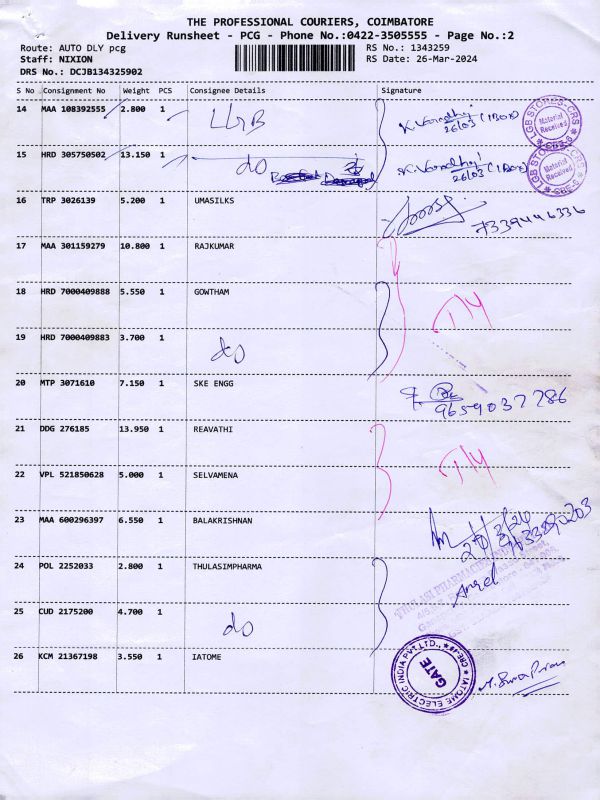 THE PROFESSIONAL COURIERS, COIMBATORE
Delivery Runsheet - PCG - Phone No.:0422-3505555 - Page No.:2
Route: AUTO DLY pcg
Staff: NIXION
DRS No.: DCJB134325902
RS No.: 1343259
RS Date: 26-Mar-2024
S No Consignment No Weight PCS Consignee Details Signature
14 MAA 108392555 2.800 1 LGB 26/03 (1BOX)
LGB STORES-CRS Material Received CBE-6
15 HRD 305750502 13.150 1 do 26/03 (1BOX)
LGB STORES-CRS Material Received CBE-6
16 TRP 3026139 5.200 1 UMASILKS 7339446336
17 MAA 301159279 10.800 1 RAJKUMAR
18 HRD 7000409888 5.550 1 GOWTHAM
19 HRD 7000409883 3.700 1 do
20 MTP 3071610 7.150 1 SKE ENGG
9659037786
21 DDG 276185 13.950 1 REAVATHI
22 VPL 521850628 5.000 1 SELVAMENA
23 MAA 600296397 6.550 1 BALAKRISHNAN
24 POL 2252033 2.800 1 THULASIMPHARMA
25 CUD 2175200 4.700 1 do
26 KCM 21367198 3.550 1 IATOME
IATOME ELECTRIC INDIA PVT.LTD.,
GATE